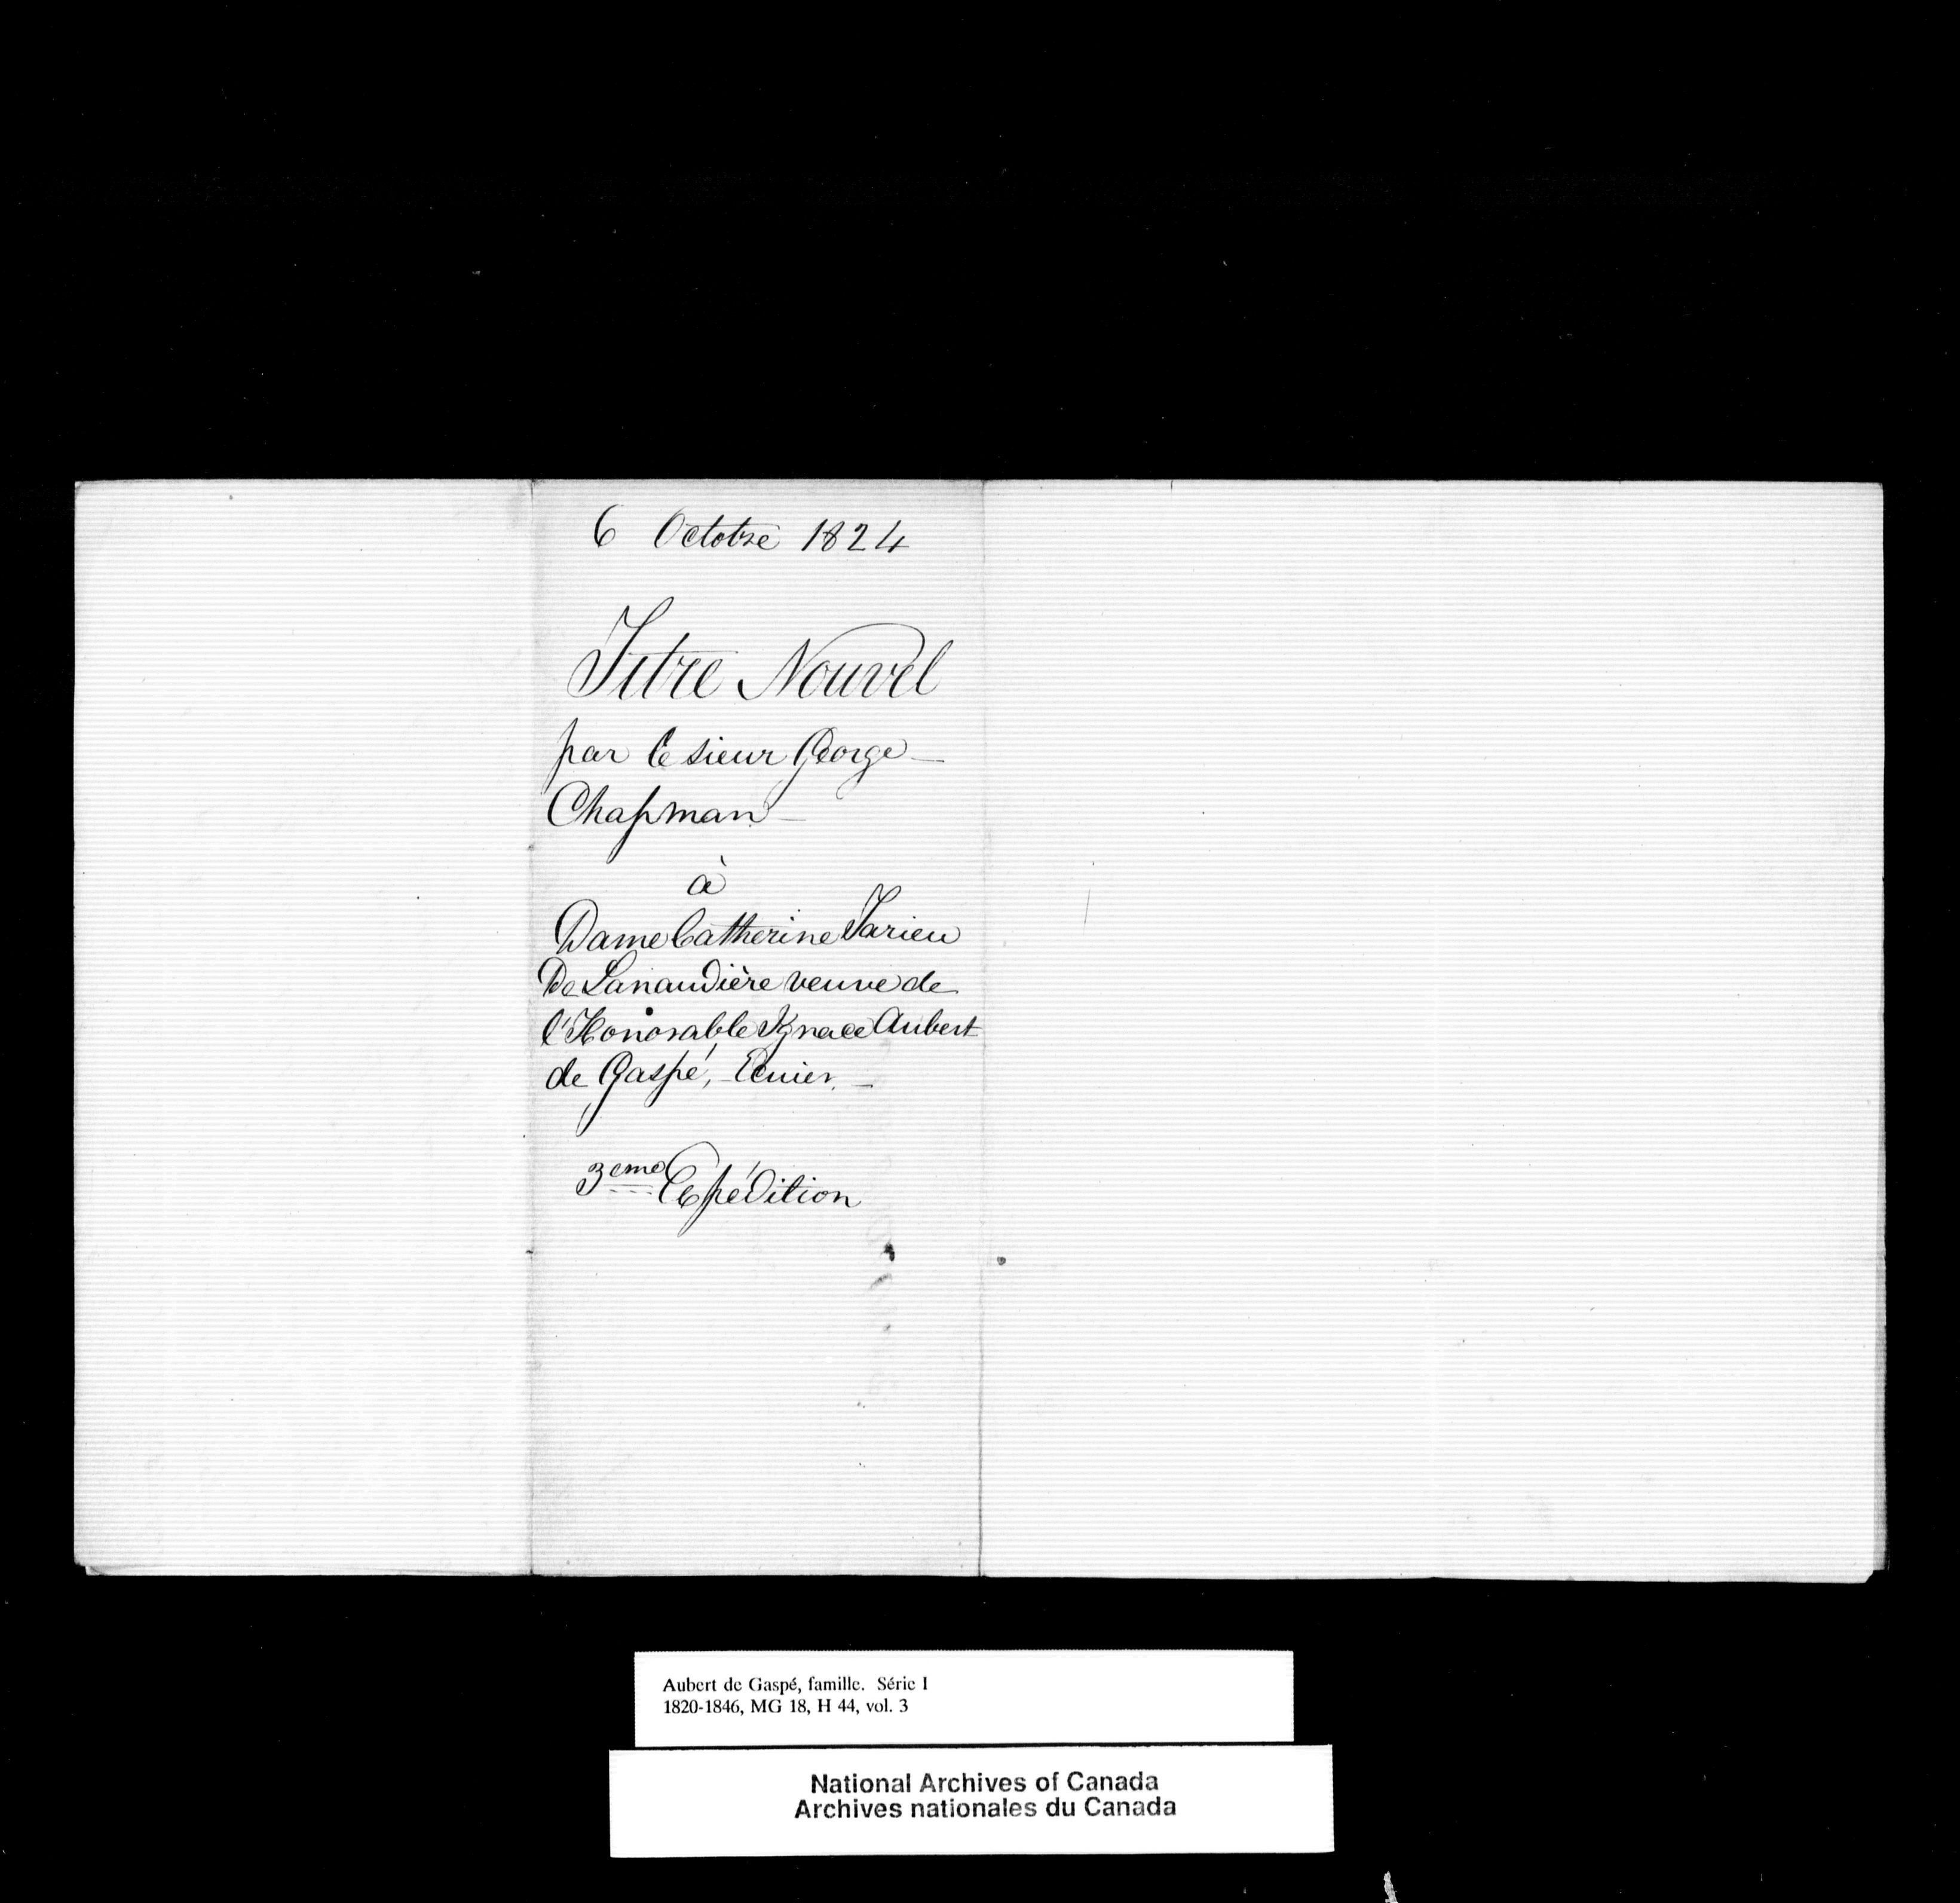 6 Octobre 1824
Titre Nouvel
par le sieur George —
Chapman —
à
Dame Catherine Tarieu
De Lanaudière veuve de
l'Honorable Ignace Aubert
de Gaspé, - Ecuier. —
3eme Expédition
Aubert de Gaspé, famille. Série I
1820-1846, MG 18, H 44, vol. 3
National Archives of Canada
Archives nationales du Canada